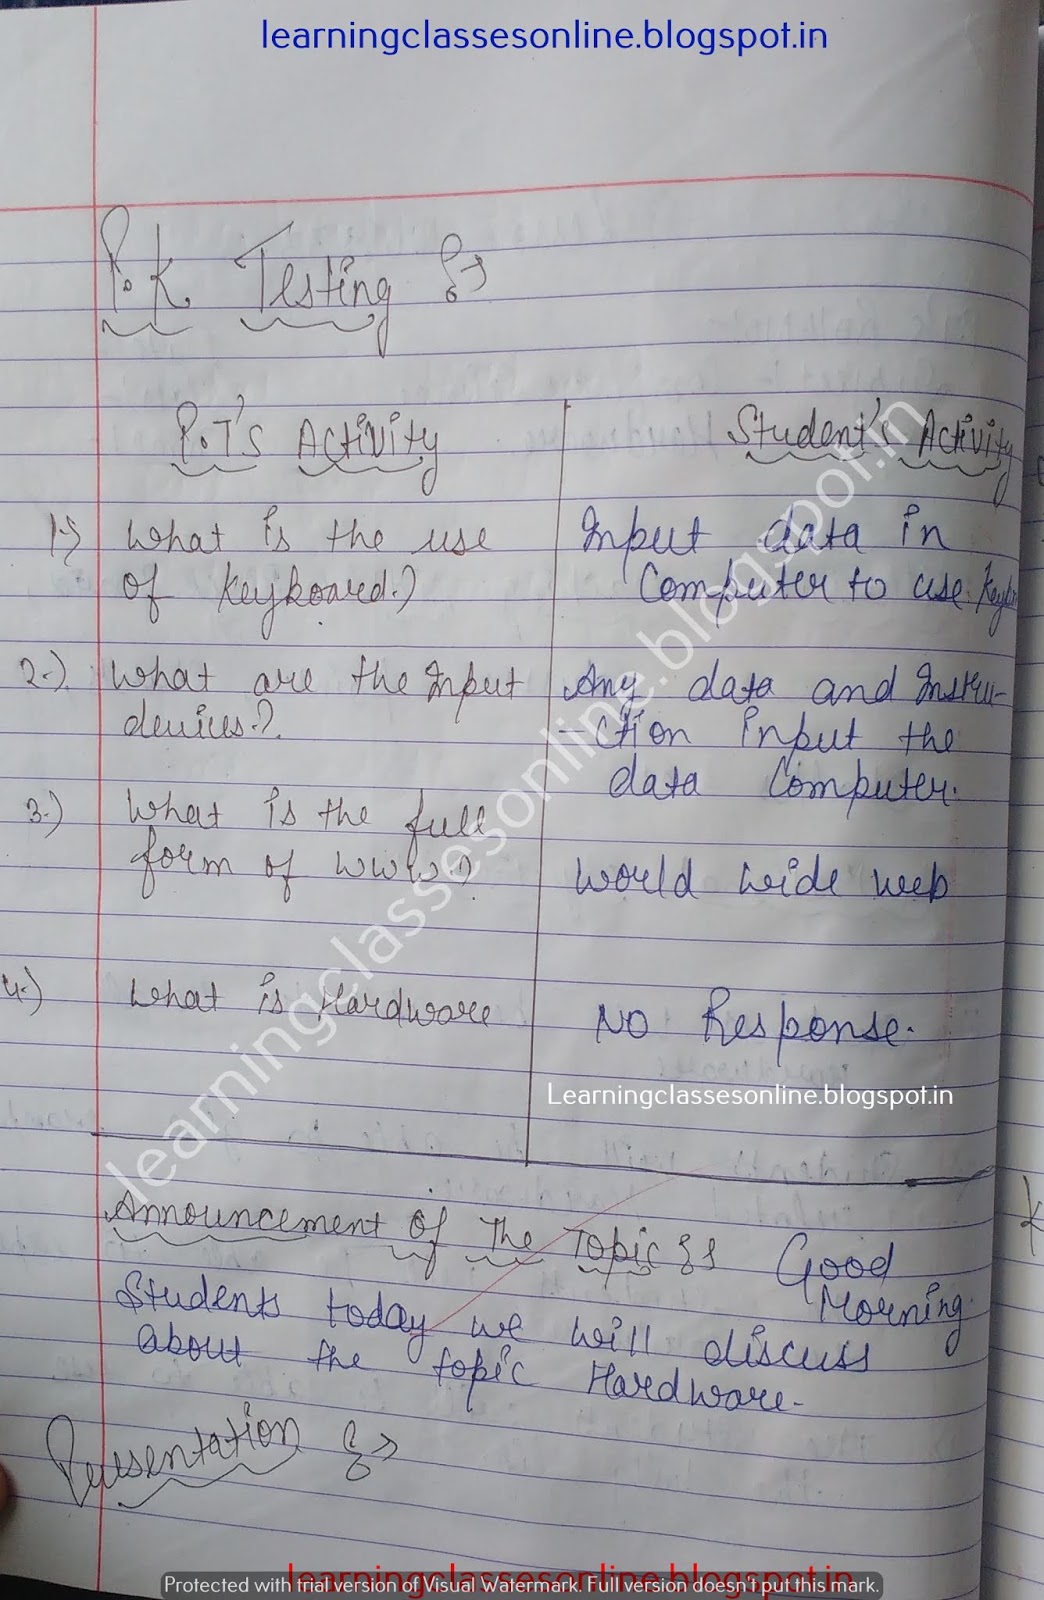 learningclassesonline.blogspot.in
P.K. Testing :→
P.T's Activity
Student's Activity
1.) What is the use
of Keyboard.?
Input data in
Computer to use
2.) What are the Input
devices.?
Any data and Instru-
-ction input the
data Computer.
3.) What is the full
form of WWW?
World wide web
4.) What is Hardware
No Response.
learningclassesonline.blogspot.in
Learningclassesonline.blogspot.in
Announcement of The Topic :→ Good
Morning
Students today we will discuss
about the topic Hardware.
Presentation :→
learningclassesonline.blogspot.in
Protected with trial version of Visual Watermark. Full version doesn't put this mark.